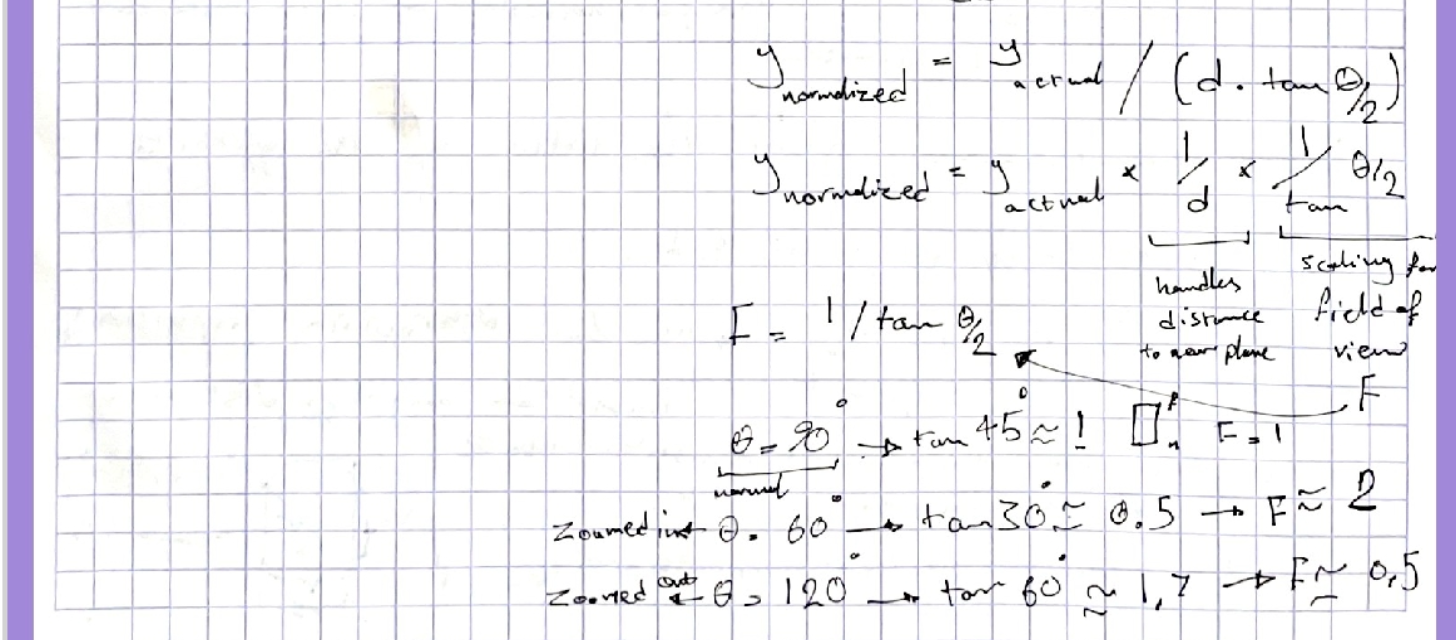 y normalized = y actual / (d . tan θ/2)
y normalized = y actual × 1/d × 1/tan θ/2
handles distance to near plane
scaling for field of view
F
F = 1 / tan θ/2
θ = 90° → tan 45° ≈ 1 F = 1
normal
Zoomed in ← θ = 60° → tan 30° ≈ 0.5 → F ≈ 2
Zoomed out ← θ = 120° → tan 60° ≈ 1,7 → F ≈ 0,5